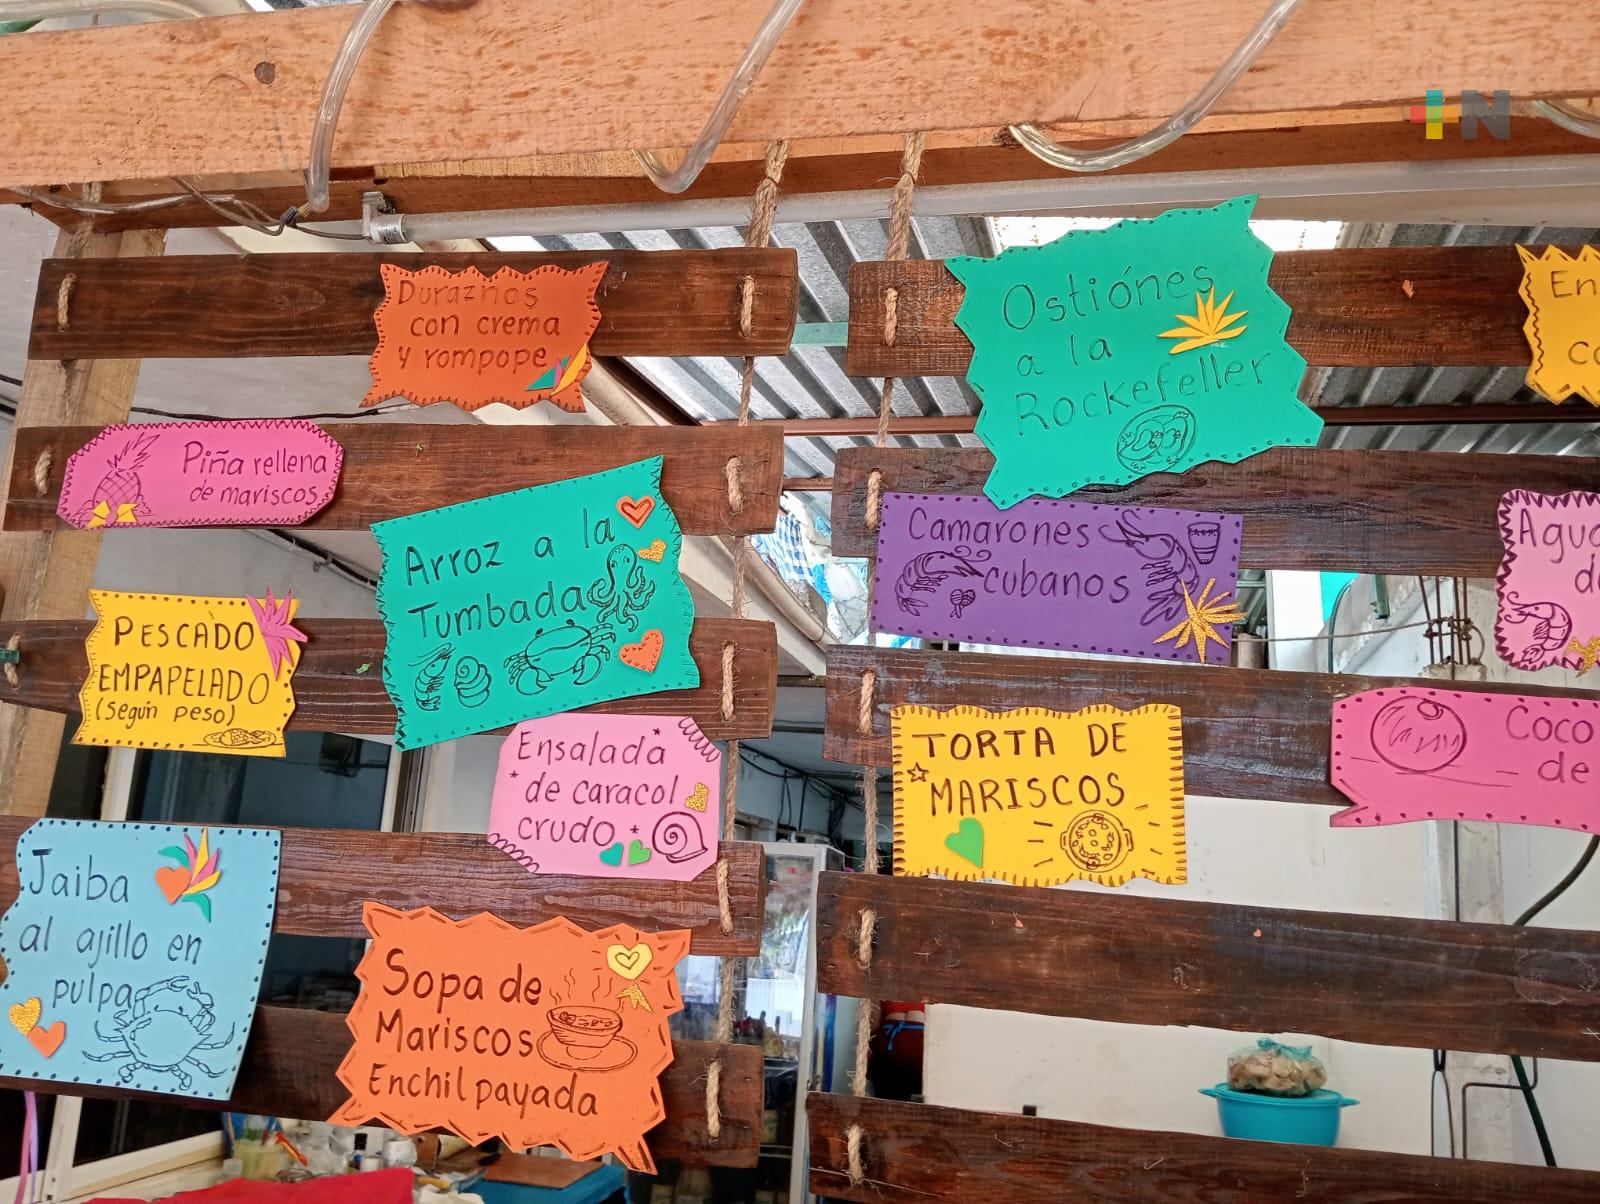 +N
Duraznos
con crema
y rompope
Piña rellena
de mariscos
Arroz a la
Tumbada
PESCADO
EMPAPELADO
(según peso)
Ensalada
de caracol
crudo
Jaiba
al ajillo en
pulpa
Sopa de
Mariscos
Enchilpayada
Ostiónes
a la
Rockefeller
Camarones
cubanos
TORTA DE
MARISCOS
En
co
Agua
de
Coco
de